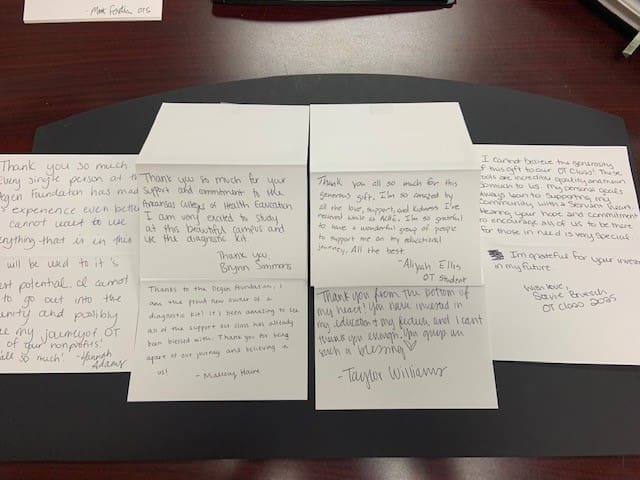 - Mark OTS
Thank you so much
Every single person at th
Degen Foundation has mad
s experience even bette
cannot wait to use
erything that is in this
will be used to it's
est potential. I cannot
to go out into the
unity and possibly
ee my journey of OT
of your nonprofits!
all so much! - Hannah
Adams
Thank you so much for your
support and commitment to the
Arkansas Colleges of Health Education
I am very excited to study
at this beautiful campus and
use the diagnostic kit.
Thank you,
Brynn Simmons
Thanks to the Degen Foundation, I
am the proud new owner of a
diagnostic kit! It's been amazing to see
all of the support our class has already
been blessed with. Thank you for being
apart of our journey and believing in
us!
- Mallory Haire
Thank you all so much for this
generous gift. I'm so amazed by
all the love, support, and kindness I've
received while at ACHE. I'm so grateful
to have a wonderful group of people
to support me on my educational
journey. All the best.
- Aliyah Ellis
OT Student
Thank you from the bottom of
my heart! You have invested in
my education & my future, and I can't
thank you enough. You guys are
such a blessing
- Taylor Williams
I cannot believe the generosity
of this gift to our OT Class! These
tools are incredible quality and mean
so much to us. My personal goals
always lean to supporting my
community with a Servant heart.
Hearing your hope and commitment
to encourage all of us to be there
for those in need is very special
I'm grateful for your invest
in my future
With love,
OT Class 2025